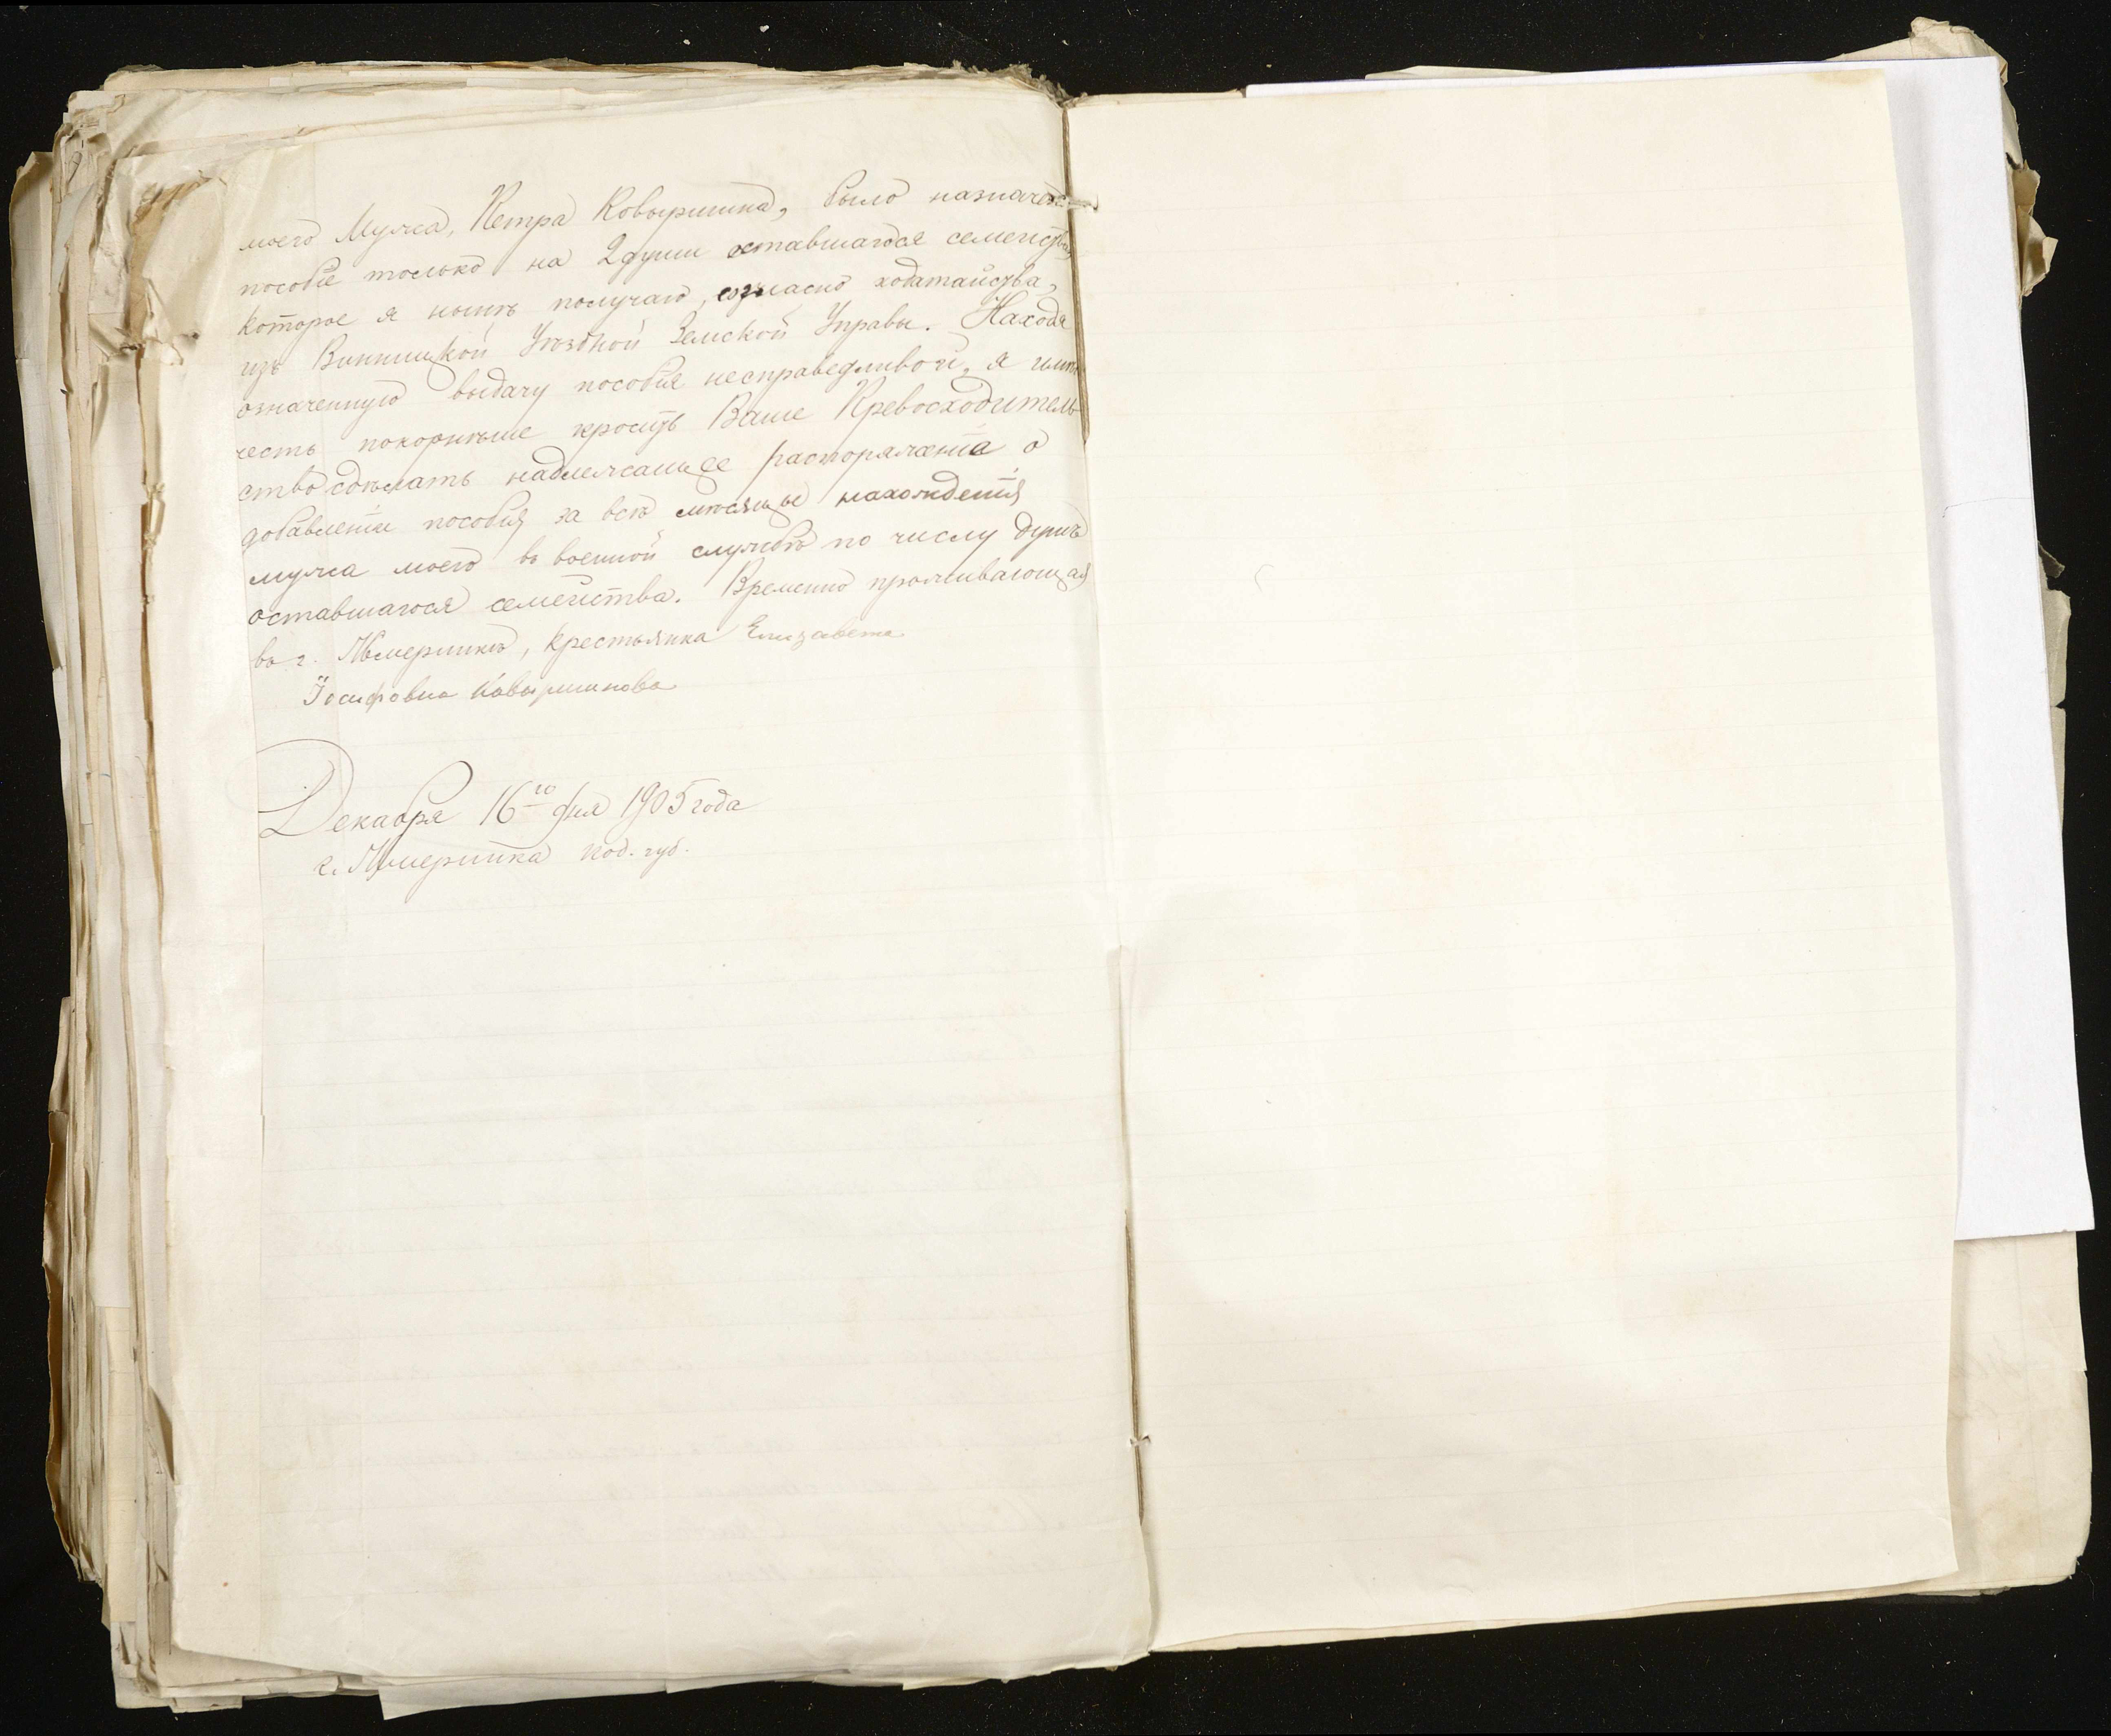 моего Мужа, Петра Ковыршина, было назначено
пособіе только на 2 души оставшагося семейства,
которое я нынѣ получаю, согласно ходатайства,
изъ Винницкой Уѣздной Земской Управы. Находя
означенную выдачу пособія несправедливой, я имѣю
честь покорнѣйше просить Ваше Превосходитель
ство сдѣлать надлежащее распоряженіе о
добавленіи пособія за всѣ мѣсяцы нахожденія
мужа моего въ военной службѣ по числу душъ
оставшагося семейства. Временно проживающая
въ г. Жмеринкѣ, крестьянка Елизавета
Іосифовна Ковыршинова
Декабря 16го дня 1905 года
г. Жмеринка под. губ.